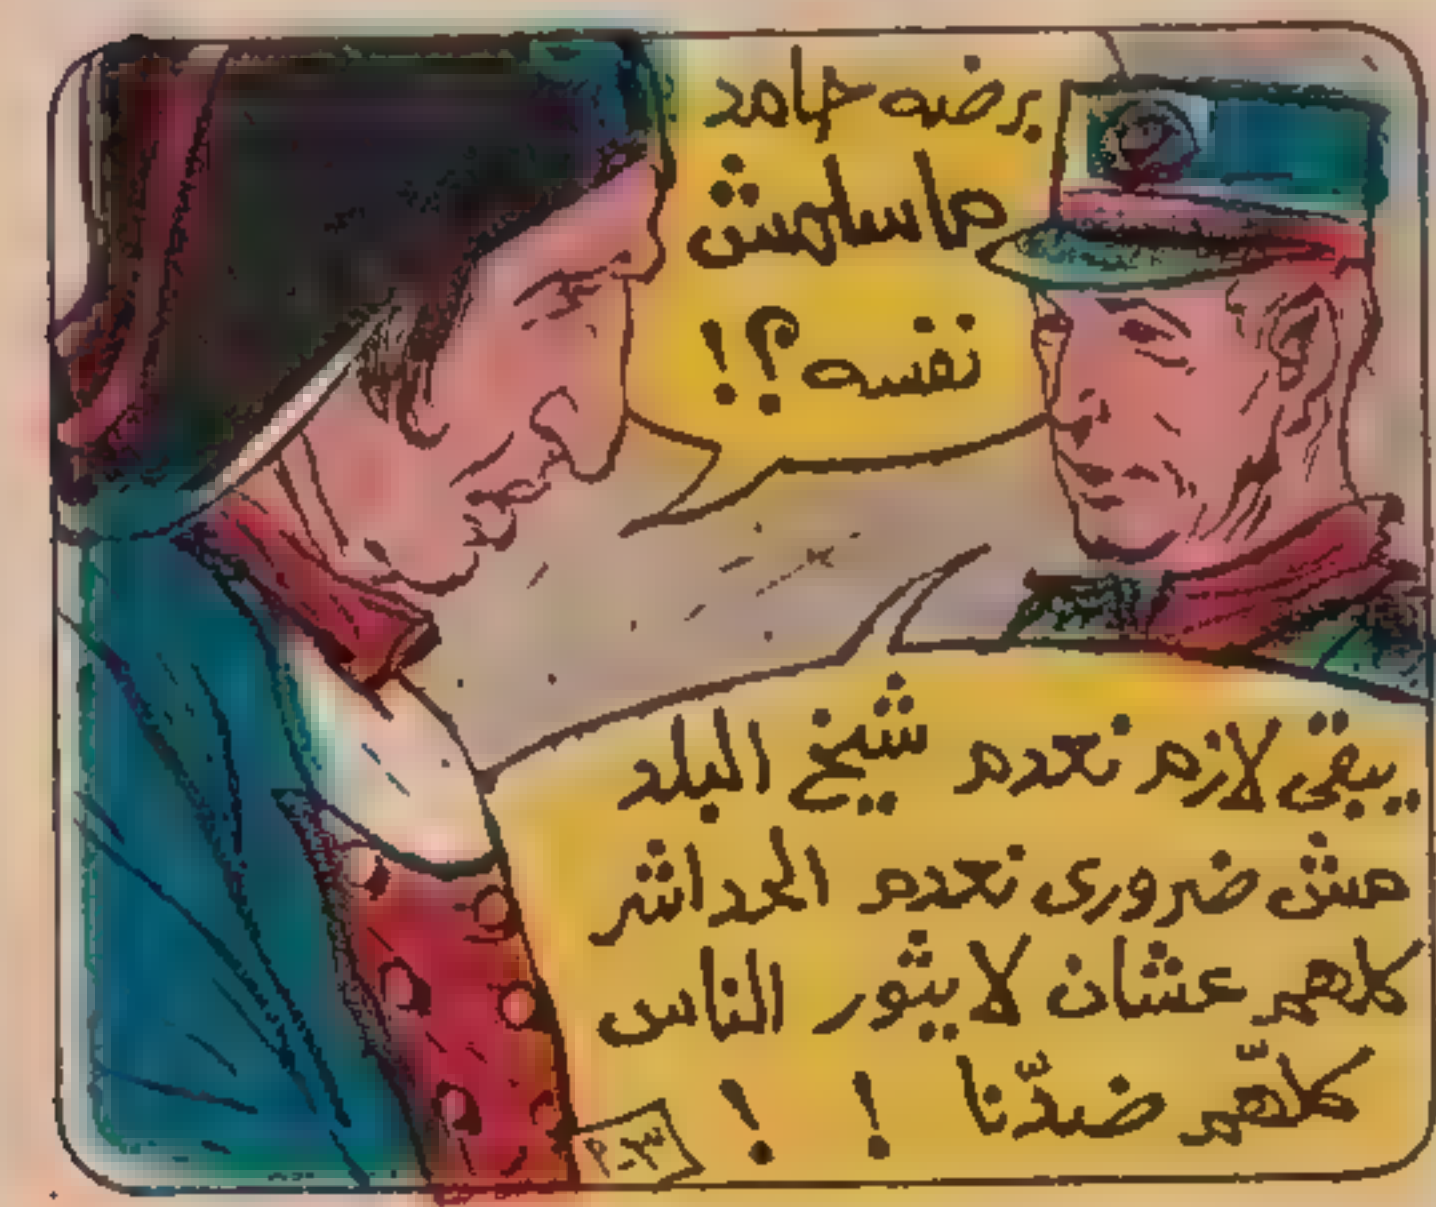 برضه حامد
ماسلمش
نفسه؟!
يبقى لازم نعدم شيخ البلد
مش ضرورى نعدم الحداشر
كلهم عشان لا يثور الناس
كلّهم ضدّنا ! !